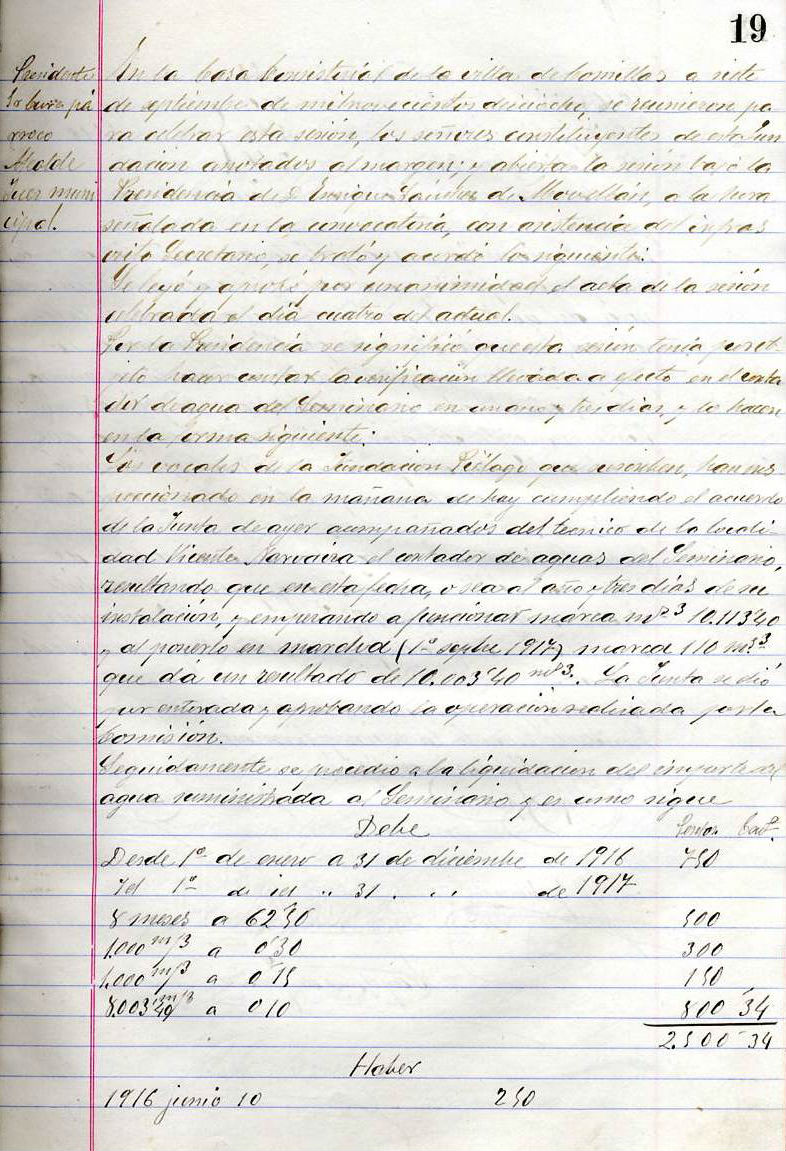 19
Presidente
Sr. Cura pá
rroco
Alcalde
Juez muni
cipal.
En la Casa Consistorial de la villa de Comillas a siete
de septiembre de mil novecientos dieciocho, se reunieron pa
ra celebrar esta sesión, los señores constituyentes de esta Fun
dación anotados al margen; y abierta la sesión bajo la
Presidencia de D. Enrique Sánchez de Movellán, a la hora
señalada en la convocatoria, con asistencia del infras
crito Secretario, se trató y acordó lo siguiente:
Se leyó y aprobó por unanimidad el acta de la sesión
celebrada el día cuatro del actual.
Por la Presidencia se significó que esta sesión tenía por ob-
jeto hacer constar la verificación llevada a efecto en el conta
dor de agua del Seminario en un año y tres días, y lo hacen
en la forma siguiente:
Los vocales de la Fundación Piélago que suscriben, han ins
peccionado en la mañana de hoy cumpliendo el acuerdo
de la Junta de ayer acompañados del técnico de la locali-
dad Vicente Narvaiza el contador de aguas del Seminario,
resultando que en esta fecha, o sea al año y tres días de su
instalación, y empezando a funcionar marca ms 3 10.113'40
y al ponerlo en marcha (1º septbre 1917) marca 110 ms.3
que dá un resultado de 10.003'40 ms3. La Junta se dió
por enterada y aprobando la operación realizada por la
Comisión.
Seguidamente se procedió a la liquidación del importe del
agua suministrada al Seminario y es como sigue
Debe Pesetas Cts.
Desde 1º de enero a 31 de diciembre de 1916 750
Id 1º de id " 31 " " de 1917
8 meses a 62'50 500
1.000 m/3 a 0'30 300
1.000 m/3 a 0'15 150
8.003'40 m/3 a 0'10 800 '34
2.500 34
Haber
1916 junio 10 250